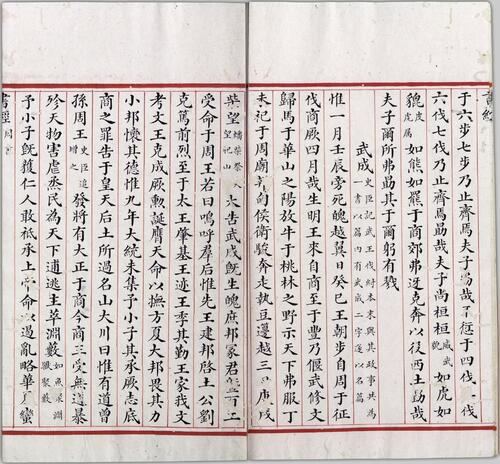 書經
于六步七步乃止齊焉夫子勗哉不愆于四伐伐
六伐七伐乃止齊焉勗哉夫子尚桓桓威武貌如虎如
貔虎屬如熊如羆于商郊弗迓克奔以役西土勗哉
夫子爾所弗勗其于爾躬有戮
武成史臣記武王伐紂本末與其政事共為一書以篇內有武成二字遂以名篇
惟一月壬辰旁死魄越翼日癸巳王朝步自周于征
伐商厥四月哉生明王來自商至于豐乃偃武修文
歸馬于華山之陽放牛于桃林之野示天下弗服丁
未祀于周廟甸侯衛駿奔走執豆籩越三庚戌
柴望燔柴祭望祀山大告武成既生魄庶邦冢君暨百工
受命于周王若曰嗚呼羣后惟先王建邦啟土公劉
克篤前烈至于太王肇基王迹王季其勤王家我文
考文王克成厥勳誕膺天命以撫方夏大邦畏其力
小邦懷其德惟九年大統未集予小子其承厥志底
商之罪告于皇天后土所過名山大川曰惟有道曾
孫周王史臣追增之發將有大正于商今商王受無道暴
殄天物害虐烝民為天下逋逃主萃淵藪如魚聚淵獸聚藪
予小子既獲仁人敢祗承上帝命以遏亂略華夏蠻
書經周書